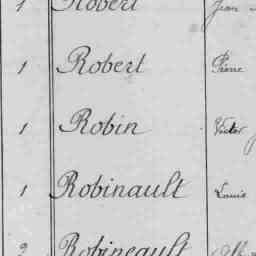 1 Robert Jean
1 Robert Pierre
1 Robin Victor
1 Robinault Louis
2 Robineault